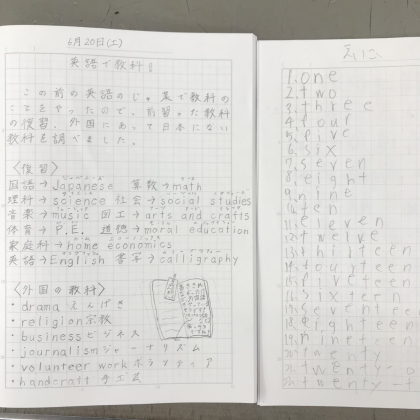 6月20日(土)
英語で教科!
この前の英語のじゅ業で教科の
ことをやったので、前習った教科
の復習、外国にあって日本にない
教科を調べました。
〈復習〉
国語→Japanese 算数→math
理科→science 社会→social studies
音楽→music 図工→arts and crafts
体育→P.E. 道徳→moral education
家庭科→home economics
英語→English 書写→calligraphy
〈外国の教科〉
・drama えんげき
・religion宗教
・businessビジネス
・journalismジャーナリズム
・volunteer workボランティア
・handcraft 手工芸
1. one
2. two
3. three
4. four
5. five
6. six
7. seven
8. eight
9. nine
10. ten
11. eleven
12. twelve
13. thirteen
14. fourteen
15. fifteen
16. sixteen
17. seventeen
18. eighteen
19. nineteen
20. twenty
21. twenty-o
22. twenty-t